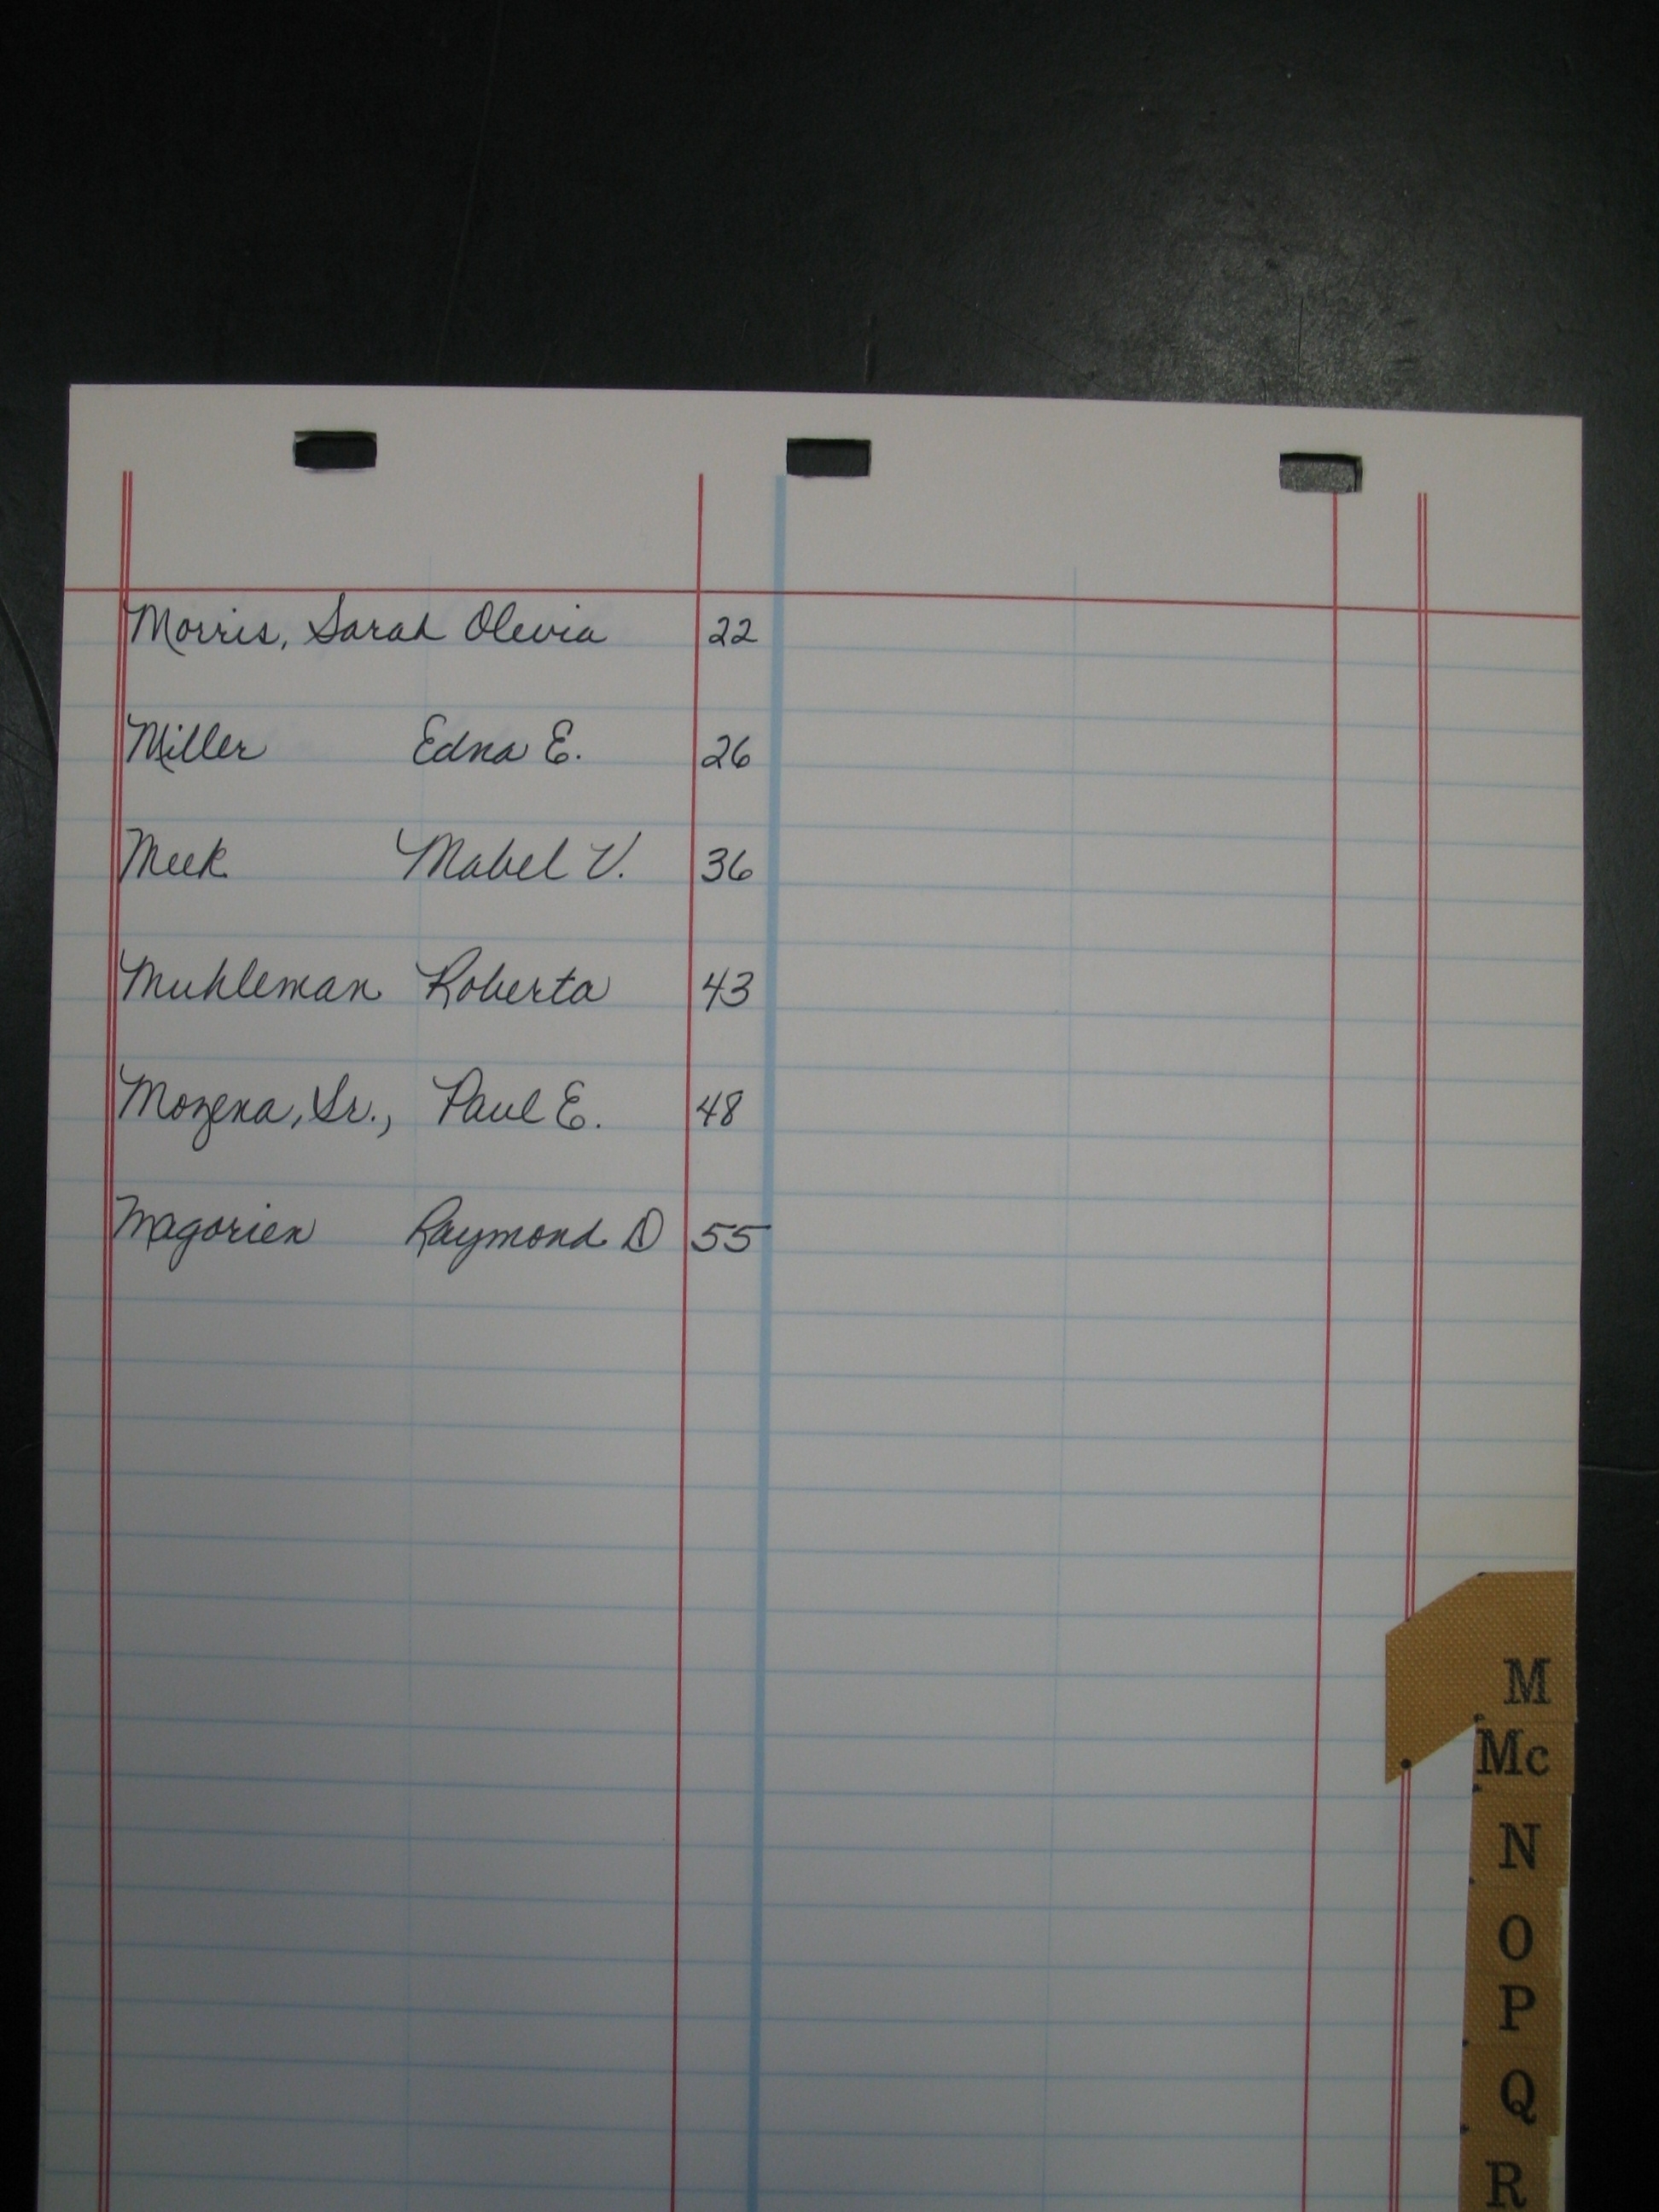 Morris, Sarah Olevia 22
Miller Edna E. 26
Meek Mabel V. 36
Muhleman Roberta 43
Mozena, Sr., Paul E. 48
Magorien Raymond D 55
M
Mc
N
O
P
Q
R